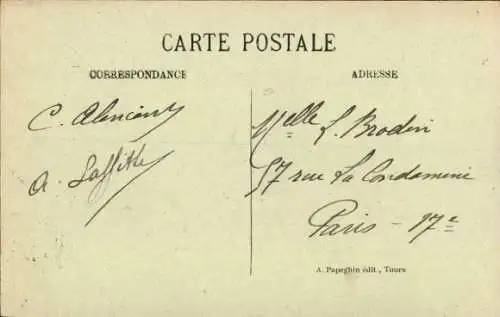 CARTE POSTALE
CORRESPONDANCE
ADRESSE
C. Alencent
A. Laffitte
Melle L. Brodin
57 rue La Condamine
Paris - 17e
A. Papeghin édit., Tours